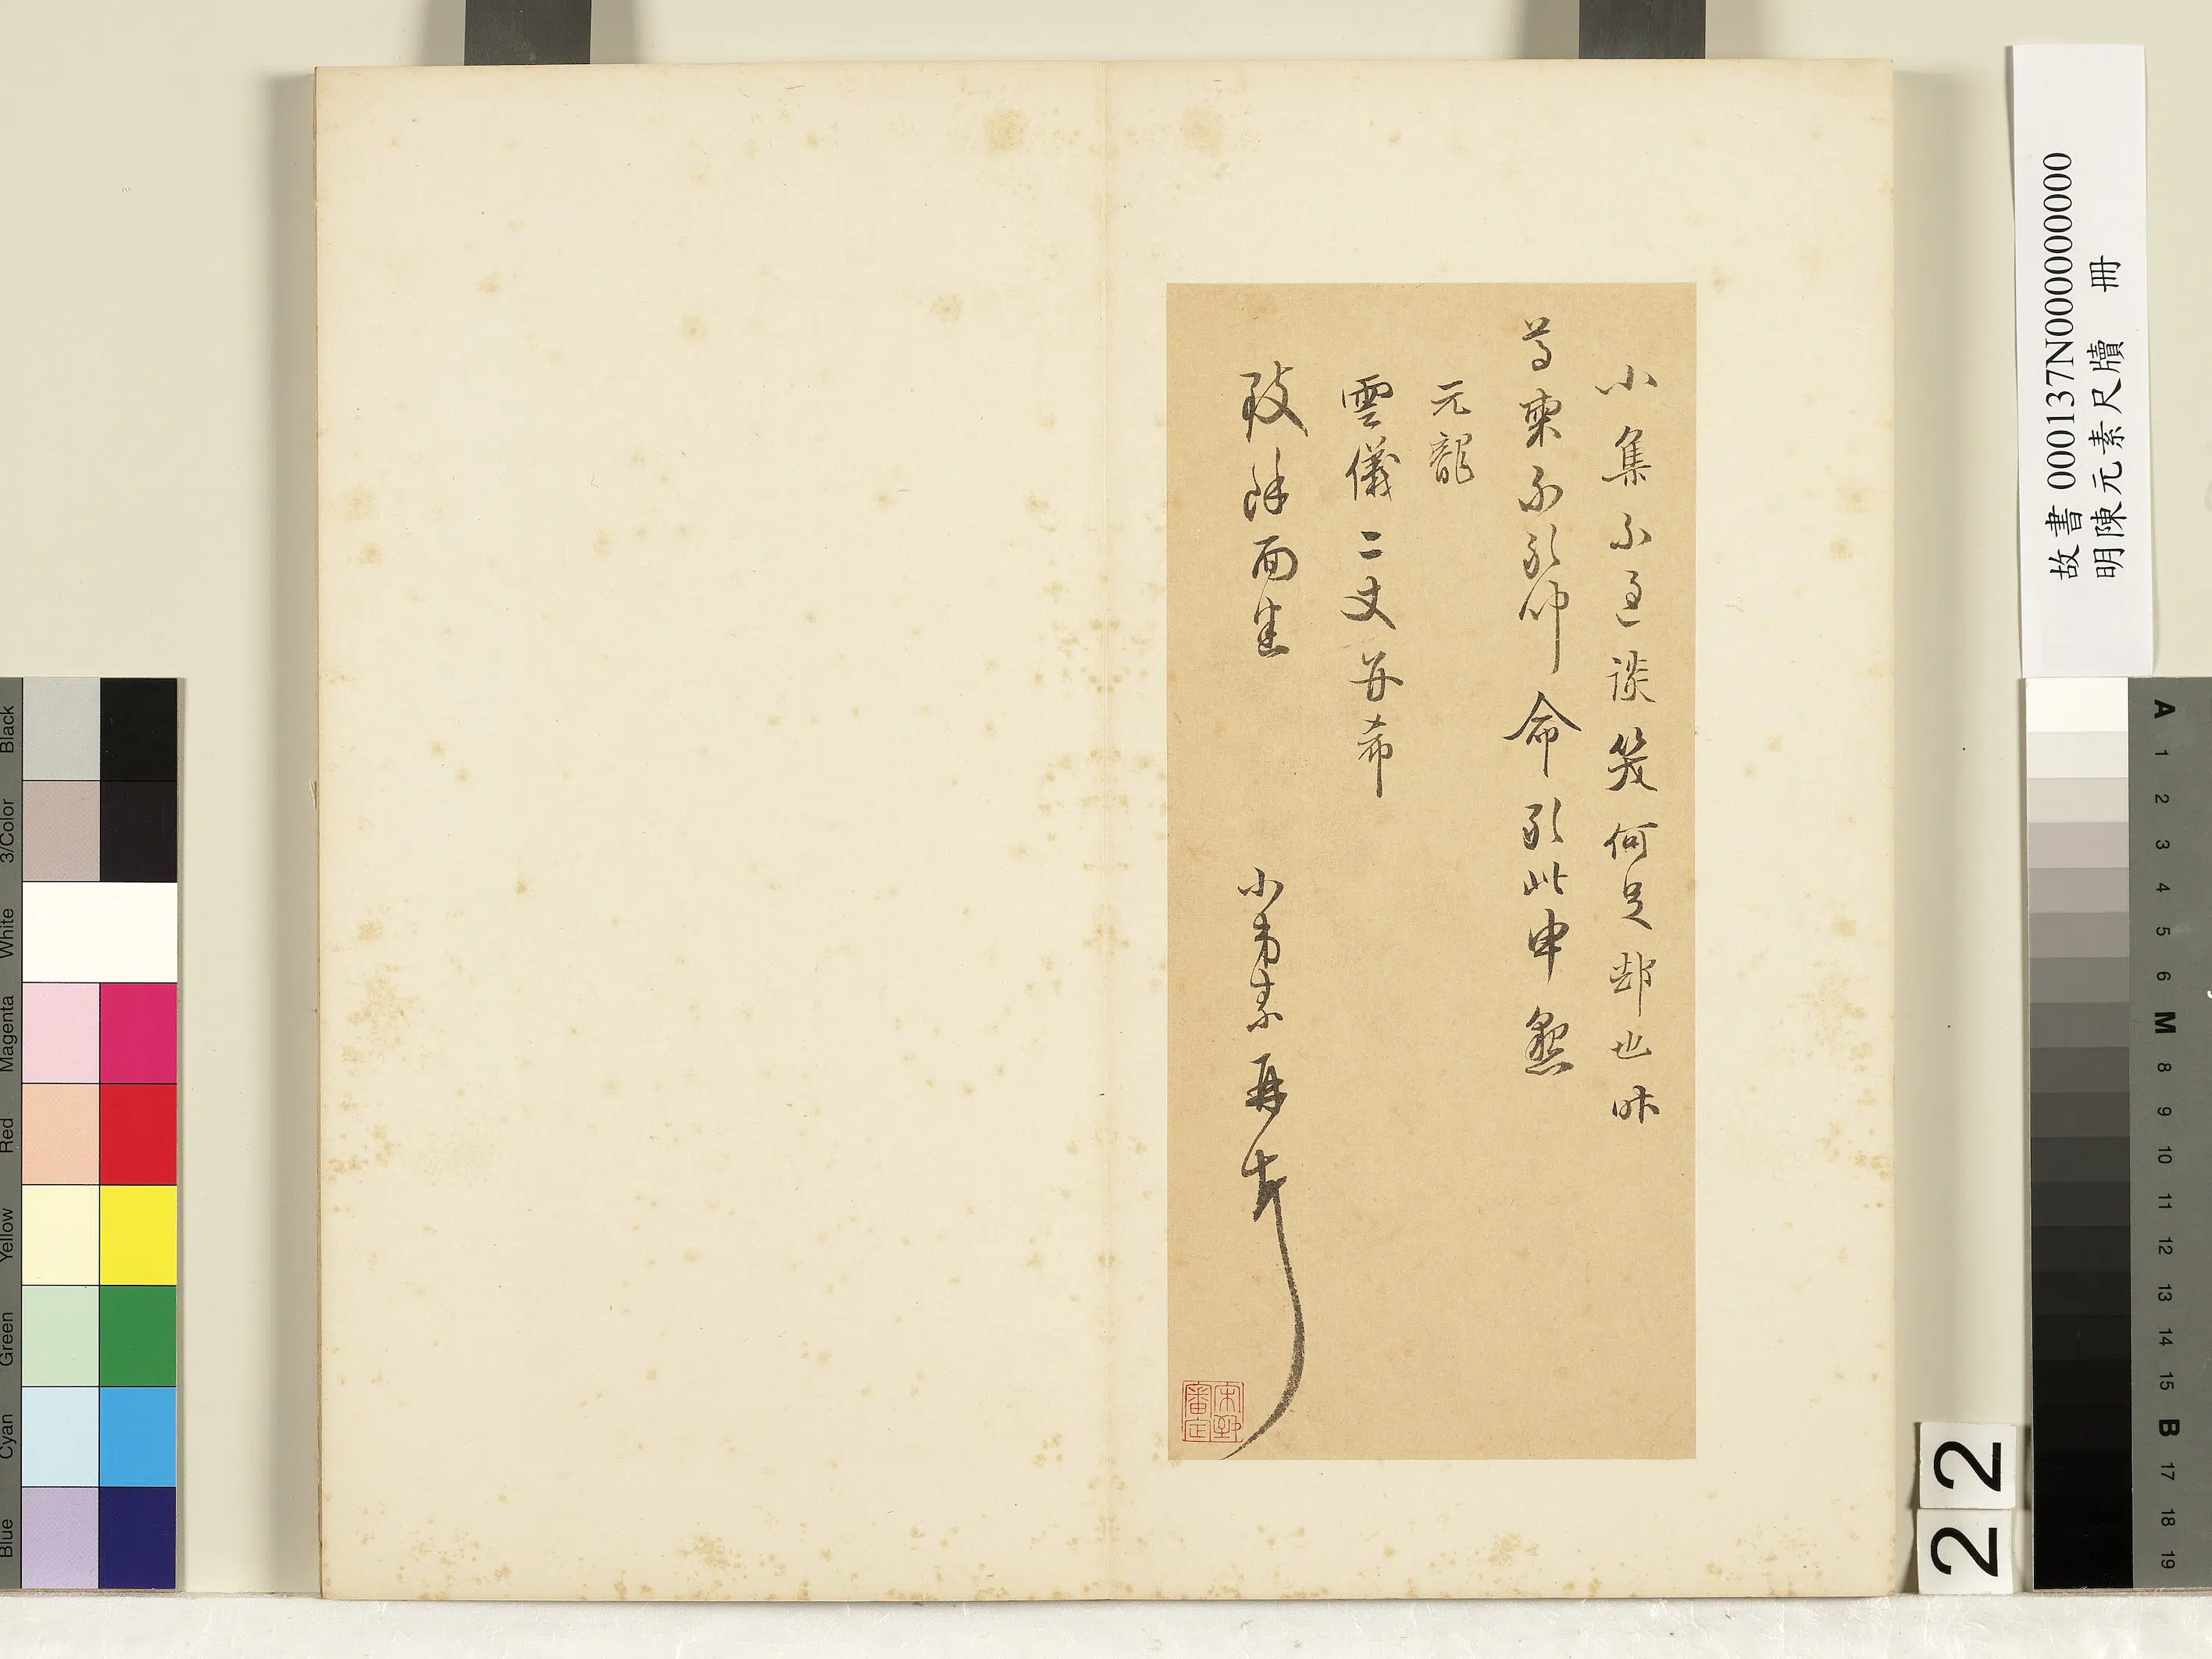 小集不過談笑何足邵也昨
尊柬不敢仰命敬此申懇
元龍
雲儀二丈並希
致餘面生
小弟素再頓
審定
故書 000137N000000000
明陳元素尺牘 冊
22
Black
3/Color
White
Magenta
Red
Yellow
Green
Cyan
Blue
A 1 2 3 4 5 6 M 8 9 10 11 12 13 14 15 B 17 18 19